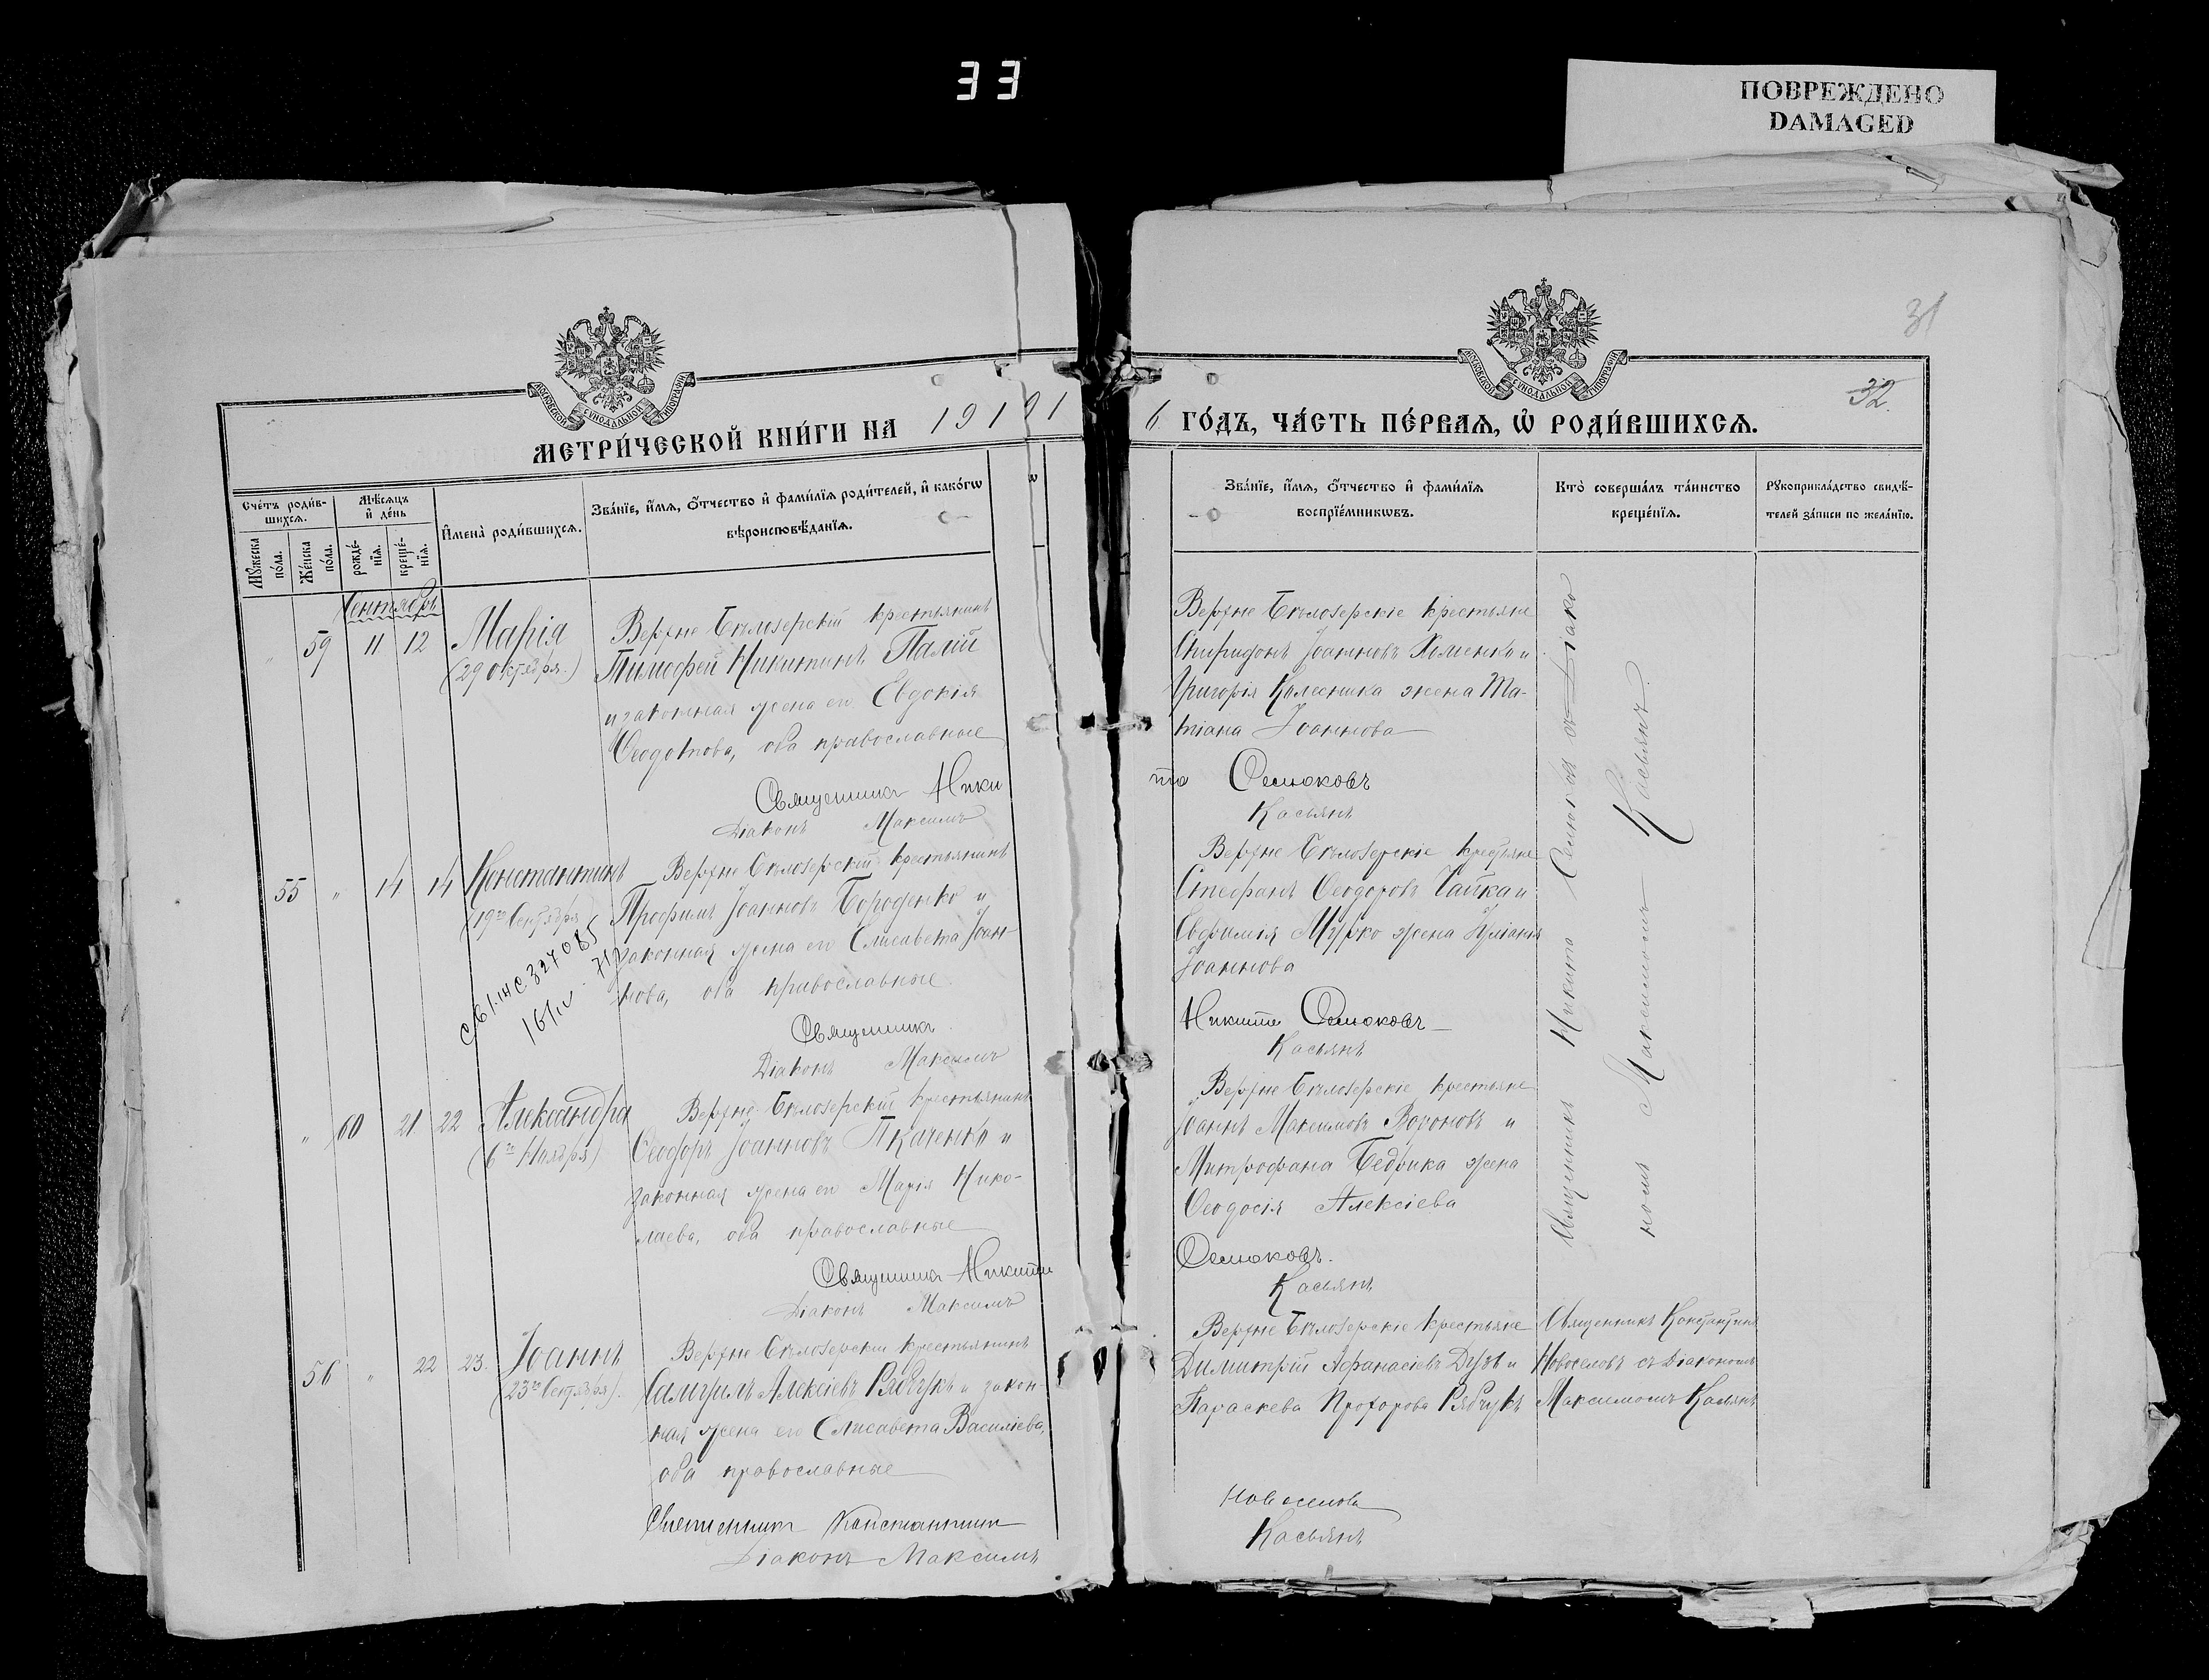 33
ПОВРЕЖДЕНО
DAMAGED
31
32.
МОСКОВСКОЙ СѴНОДАЛЬНОЙ ТИПОГРАФІИ
МОСКОВСКОЙ СѴНОДАЛЬНОЙ ТИПОГРАФІИ
МЕТРИ́ЧЕСКОЙ КНИ́ГИ НА 191 91
6 ГО́ДЪ, ЧА́СТЬ ПЕ́РВАЯ, Ѡ҆ РОДИ́ВШИХСЯ.
Сче́тъ роди́в-
шихся.
Му́жеска
по́ла.
Же́нска
по́ла.
Мѣ́сяцъ
и҆ де́нь
рожде́-
нїя.
креще́-
нїя.
И҆мена̀ роди́вшихся.
Зва́нїе, и҆́мя, ѻ҆́тчество и҆ фами́лїя роди́телей, и҆ како́гѡ
вѣроисповѣ́данїя.
Зва́нїе, и҆́мя, ѻ҆́тчество и҆ фами́лїя
воспрїе́мникѡвъ.
Кто̀ соверша́лъ та́инство
креще́нїя.
Рꙋкоприкла́дство свидѣ́-
телей за́писи по жела́нїю.
Сентябрь
" 59 11 12 Марія
(29 Октября.)
Верхне Бѣлозерскій крестьянинъ
Тимофей Никитинъ Палій
и законная жена его Евдокія
Ѳеодотова, оба православные
Священникъ Ники
Діаконъ Максимъ
Верхне Бѣлозерскіе крестьяне
Спиридонъ Іоанновъ Хоменко и
Григорія Колесника жена Та-
тіана Іоаннова
та Семюковъ
Касьянъ
55 " 14 14 Константинъ
(19го Сентября)
327085
Верхне Бѣлозерскій крестьянинъ
Трофимъ Іоанновъ Бороденко и
законная жена его Елисавета Іоан-
нова, оба православные
Священникъ
Діаконъ Максимъ
Верхне Бѣлозерскіе крестьяне
Стефанъ Ѳеодоровъ Чайка и
Евфимія Мурко жена Іуліанія
Іоаннова
Никита Семюковъ
Касьянъ
" 60 21 22 Александра
(6го Ноября)
Верхне Бѣлозерскій крестьянинъ
Ѳеодоръ Іоанновъ Ткаченко и
законная жена его Марія Нико-
лаева, оба православные
Священникъ Никита
Діаконъ Максимъ
Верхне Бѣлозерскіе крестьяне
Іоаннъ Максимовъ Вороновъ и
Митрофана Бедрика жена
Ѳеодосія Алексіева
Семюковъ.
Касьянъ
Священникъ Никита Семюковъ съ Діако
номъ Максимомъ Касьянъ
56 " 22 23. Іоаннъ
(23го Сентября).
Верхне Бѣлозерскій крестьянинъ
Самуилъ Алексіевъ Рябчукъ и закон
ная жена его Елисавета Василіева,
оба православные
Священникъ Константинъ
Діаконъ Максимъ
Верхне Бѣлозерскіе крестьяне
Димитрій Афанасіевъ Дузъ и
Параскева Прохорова Рябчукъ
Новоселовъ
Касьянъ
Священникъ Константинъ
Новоселовъ съ Діакономъ
Максимомъ Касьянъ